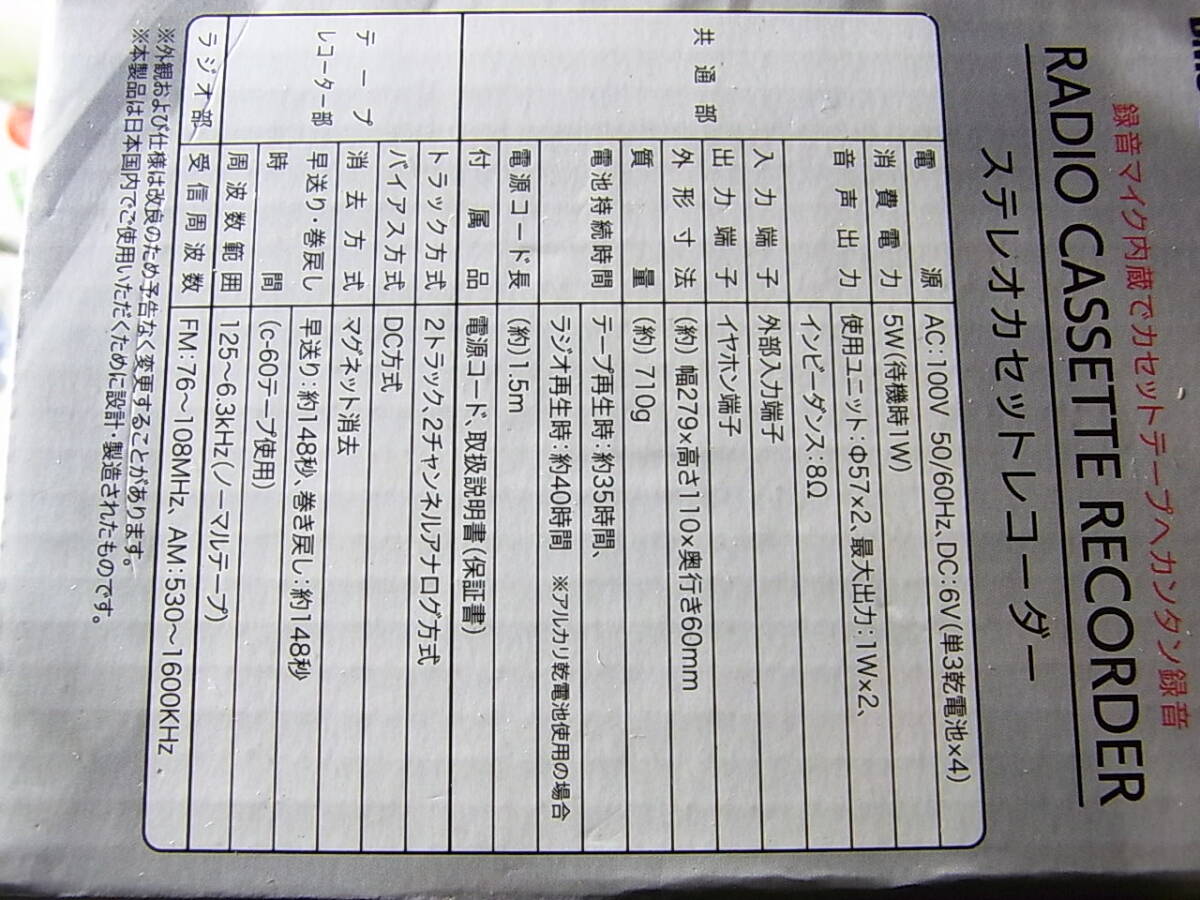 録音マイク内蔵でカセットテープへカンタン録音
RADIO CASSETTE RECORDER
ステレオカセットレコーダー
共通部
電源 AC:100V 50/60Hz、DC:6V(単3乾電池×4)
消費電力 5W(待機時1W)
音声出力 使用ユニット:Φ57×2、最大出力:1W×2、
インピーダンス:8Ω
入力端子 外部入力端子
出力端子 イヤホン端子
外形寸法 (約) 幅279×高さ110×奥行き60mm
質量 (約) 710g
電池持続時間 テープ再生時:約35時間、
ラジオ再生時:約40時間 ※アルカリ乾電池使用の場合
電源コード長 (約)1.5m
付属品 電源コード、取扱説明書(保証書)
テープ
レコーター部
トラック方式 2トラック2チャンネルアナログ方式
バイアス方式 DC方式
消去方式 マグネット消去
早送り・巻戻し 早送り:約148秒、巻き戻し:約148秒
時間 (c-60テープ使用)
周波数範囲 125～6.3kHz(ノーマルテープ)
ラジオ部 受信周波数 FM:76～108MHz, AM:530～1600KHz
※外観および仕様は改良のため予告なく変更することがあります。
※本製品は日本国内でご使用いただくために設計・製造されたものです。